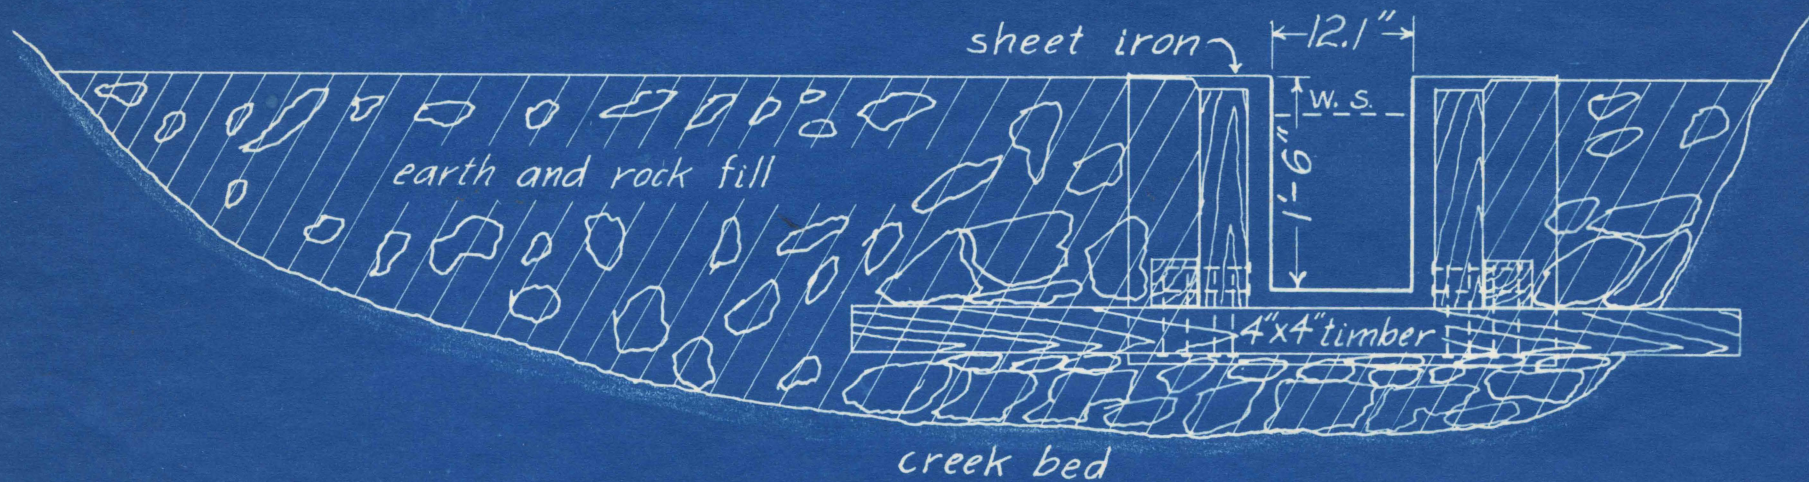 sheet iron
12.1"
W. S.
1'-6"
earth and rock fill
4"x4" timber
creek bed